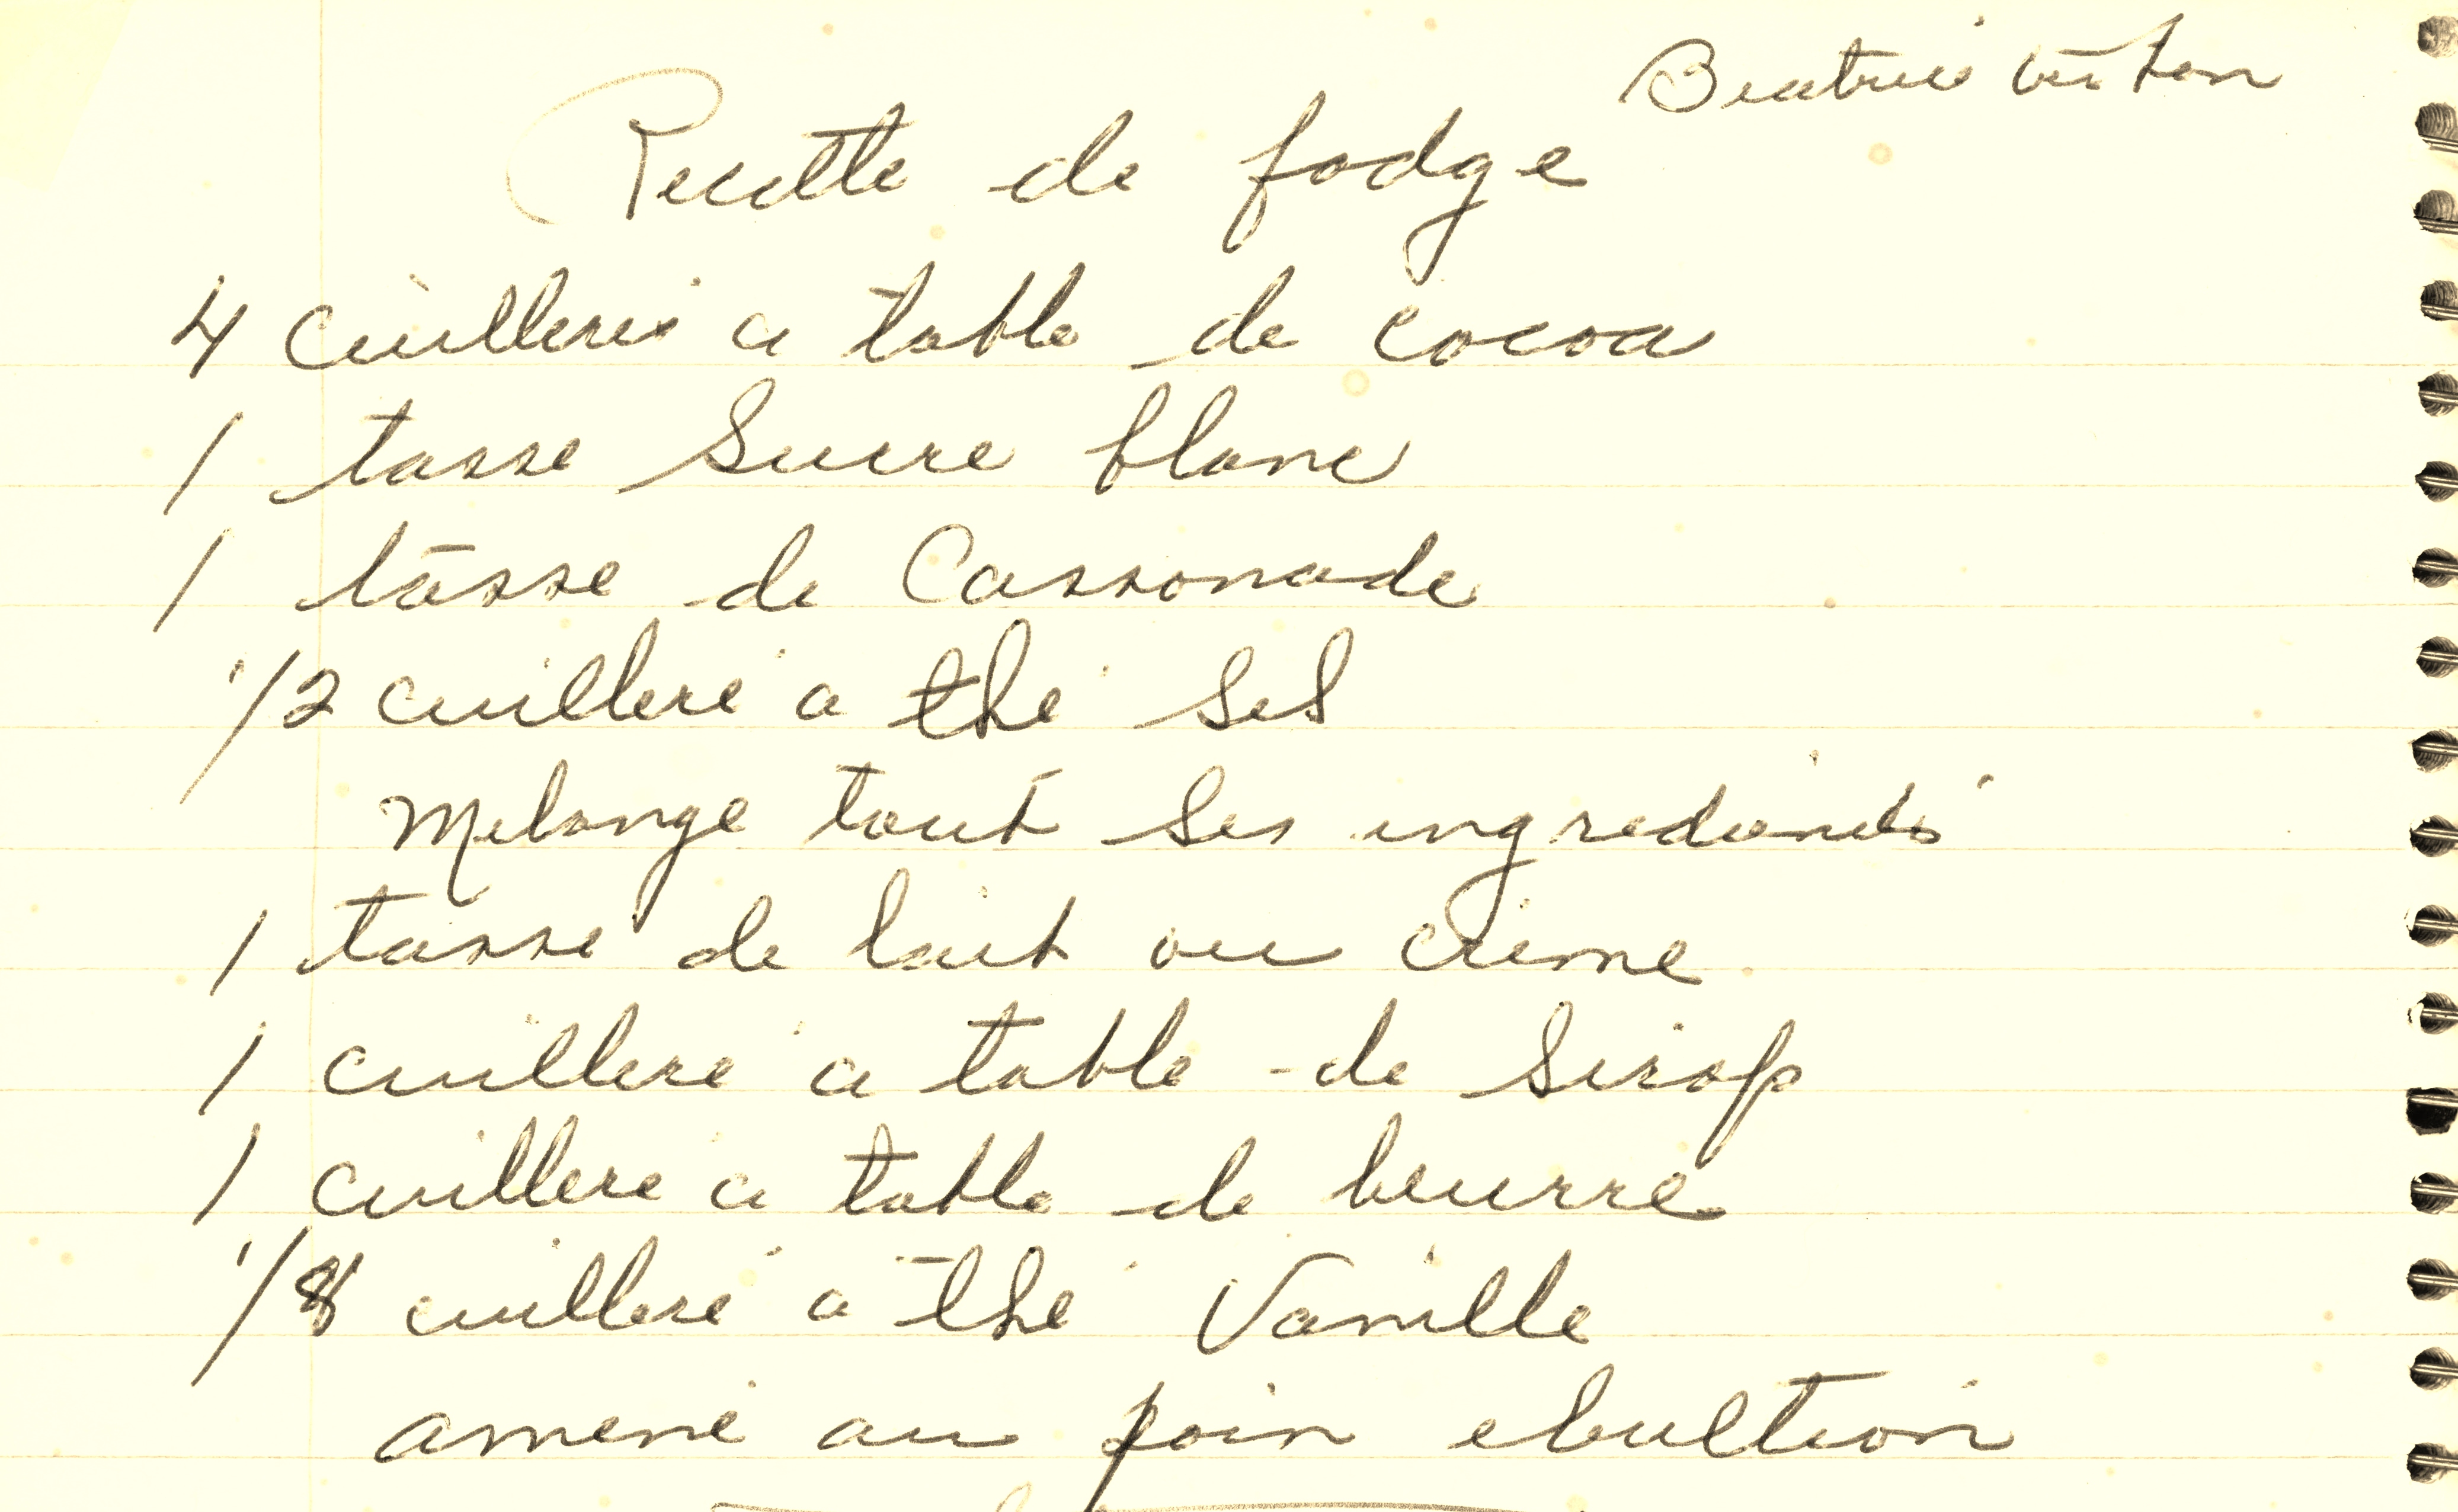 Beatrice
Recette de fodge
4 cuilleres a table de cocoa
1 tasse Sucre blanc
1 tasse de Cassonade
1/2 cuilleré a thé sel
Melange tout ses ingredients
1 tasse de lait ou crème
1 cuilleré a table de Sirop
1 cuillere a table de beurre
1/8 cuilleré a thé Vanille
amené au poin ebultion